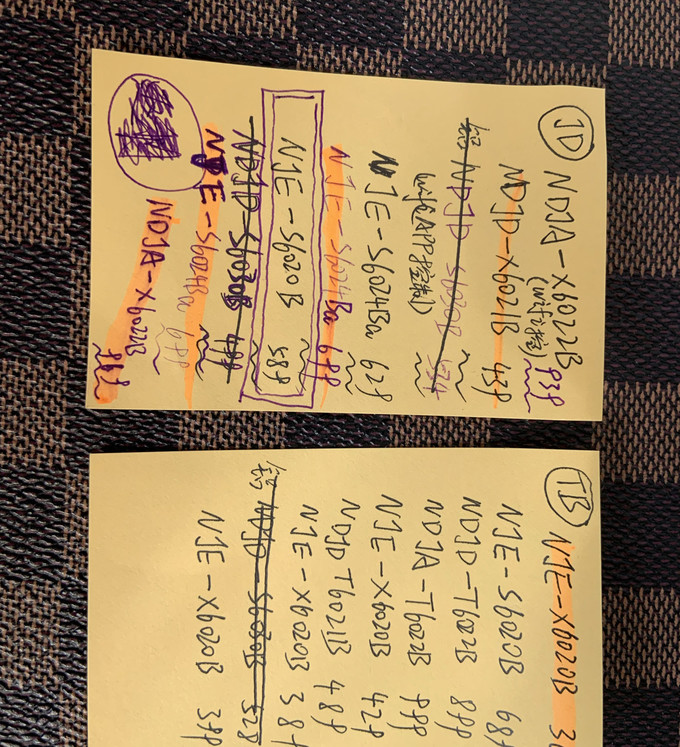 JD
NDJA-X6022B 939
(wifi控)
NDJD-X6021B 439
NDJD-S6030B
NJE-S6024Ba 629
(wifi APP控制)
NJE-S6024Ba 699
NJE-S6020B 589
NDJD-S6030B 499
NJE-S6024Ba 699
NDJA-X6022B
TB
NJE-X6020B
NJE-S6020B
NDJD-T6022B 899
NDJA-T6022B 999
NJE-X6020B 429
NDJD-T6021B 489
NJE-X6020B 389
NDJD-S6030B 529
NJE-X6020B 399